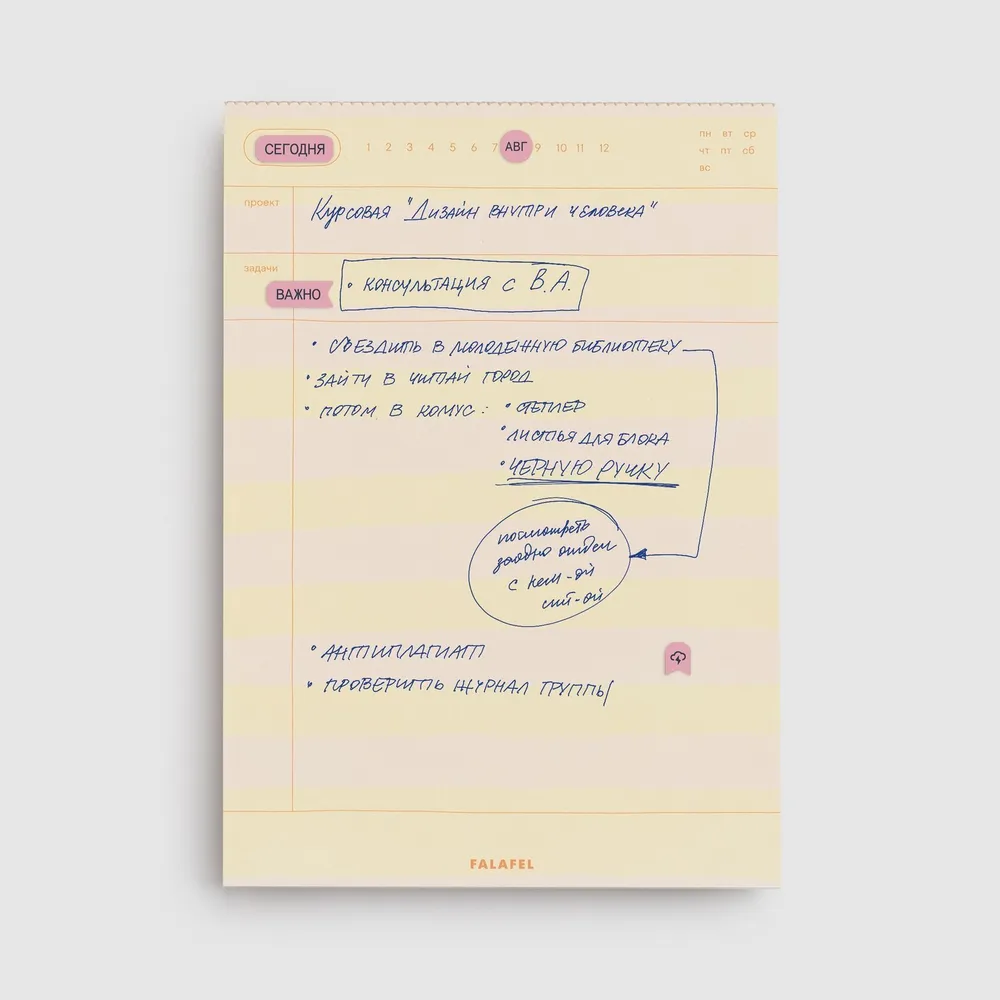 СЕГОДНЯ 1 2 3 4 5 6 7 АВГ 9 10 11 12
пн вт ср
чт пт сб
вс
проект Курсовая "Дизайн внутри человека"
задачи
ВАЖНО • консультация с В.А.
• съездить в молодежную библиотеку
• зайти в читай город
• потом в комус: • степлер
• листья для блока
• черную ручку
посмотреть
заодно
с
• антиплагиат
• проверить журнал группы
FALAFEL